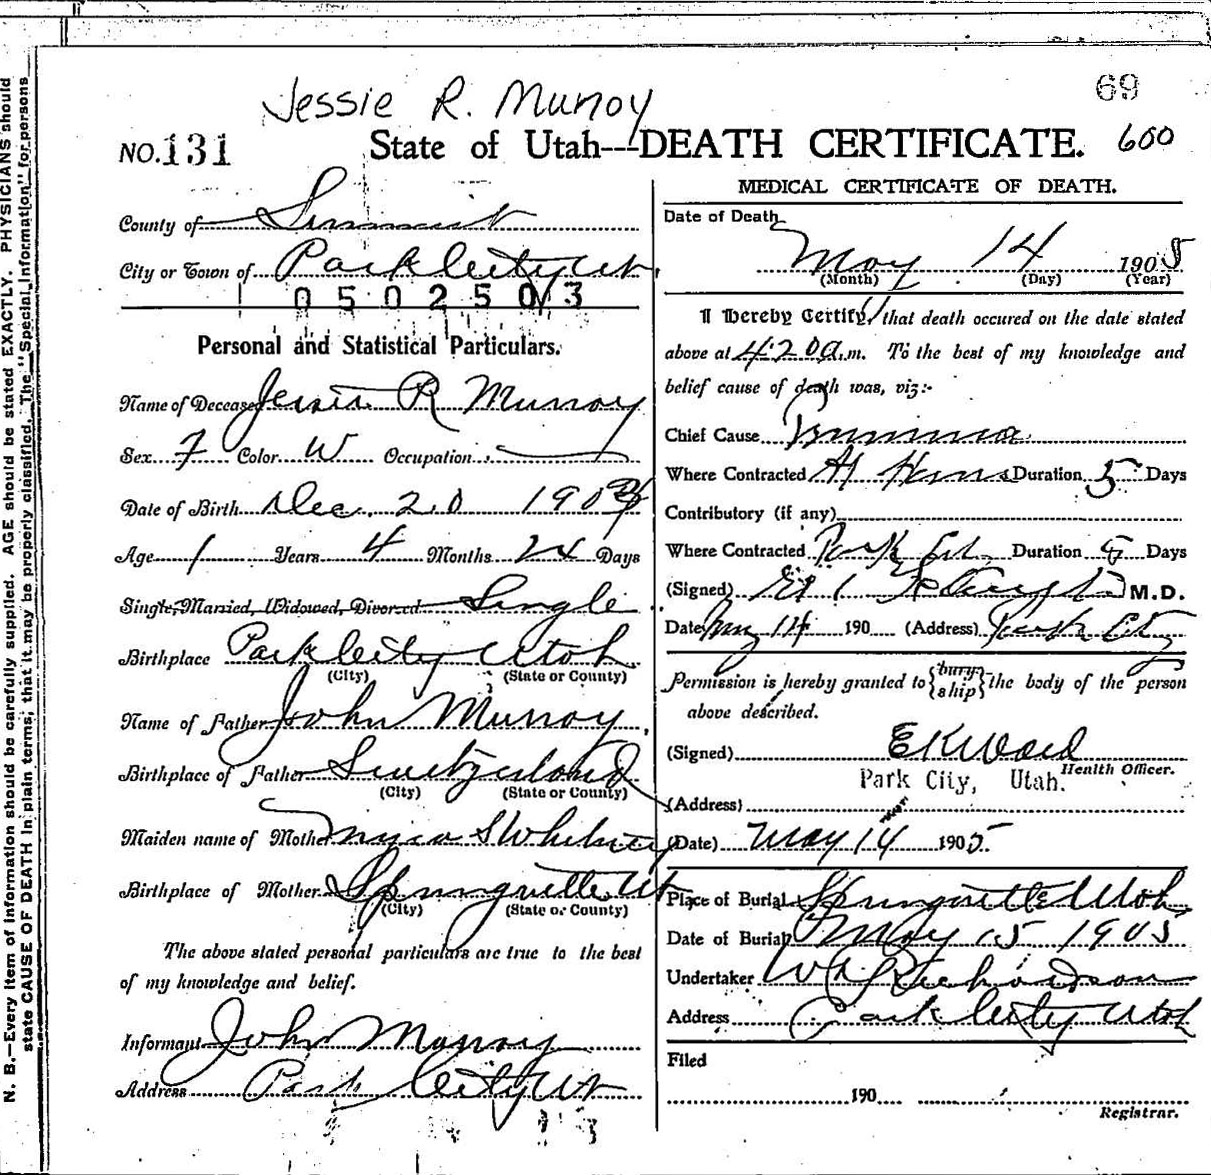 Jessie R. Munoy
69
NO. 131 State of Utah--DEATH CERTIFICATE. 600
County of Summit
City or Town of Park City Ut.
0502503
Personal and Statistical Particulars.
Name of Deceased Jessie R Munoy
Sex F Color W Occupation
Date of Birth Dec. 20 1903
Age 1 Years 4 Months 24 Days
Single, Married, Widowed, Divorced Single
Birthplace Park City Utah
(City) (State or County)
Name of Father John Munoy
Birthplace of Father Switzerland
(City) (State or County)
Maiden name of Mother S Whitney
Birthplace of Mother Springville Ut
(City) (State or County)
The above stated personal particulars are true to the best
of my knowledge and belief.
Informant John Munoy
Address Park City Ut
MEDICAL CERTIFICATE OF DEATH.
Date of Death
May 14 1905
(Month) (Day) (Year)
I Hereby Certify, that death occured on the date stated
above at 4:20 a.m. To the best of my knowledge and
belief cause of death was, viz:-
Chief Cause
Where Contracted At Home Duration 5 Days
Contributory (if any)
Where Contracted Park City Duration 5 Days
(Signed) M.D.
Date May 14 190 (Address) Park City
Permission is hereby granted to {bury ship} the body of the person
above described.
(Signed) E K Ward
Health Officer.
Park City, Utah.
(Address)
(Date) May 14 1905
Place of Burial Springville Utah
Date of Burial May 15 1905
Undertaker W Richardson
Address Park City Utah
Filed
190
Registrar.
N. B.—Every item of information should be carefully supplied. AGE should be stated EXACTLY. PHYSICIANS should
state CAUSE OF DEATH in plain terms, that it may be properly classified. The "Special Information" for persons